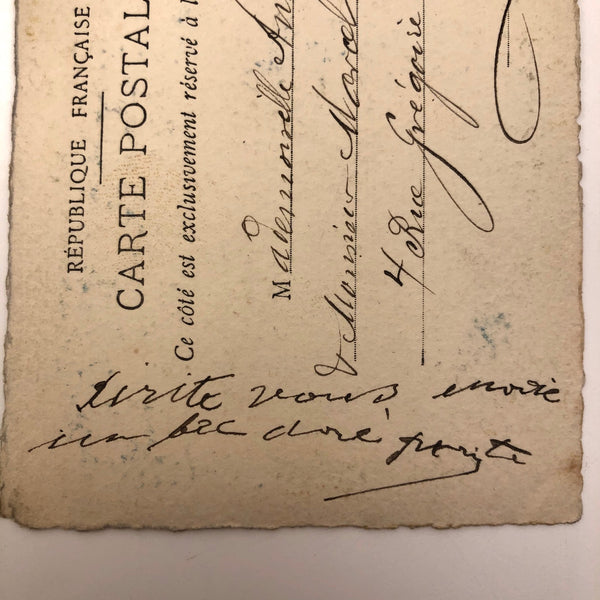 RÉPUBLIQUE FRANÇAISE
CARTE POSTAL
Ce côté est exclusivement réservé à l
Mademoiselle An
& Monsieur Marcel
4 Rue Grégoire
vous
un bec doré